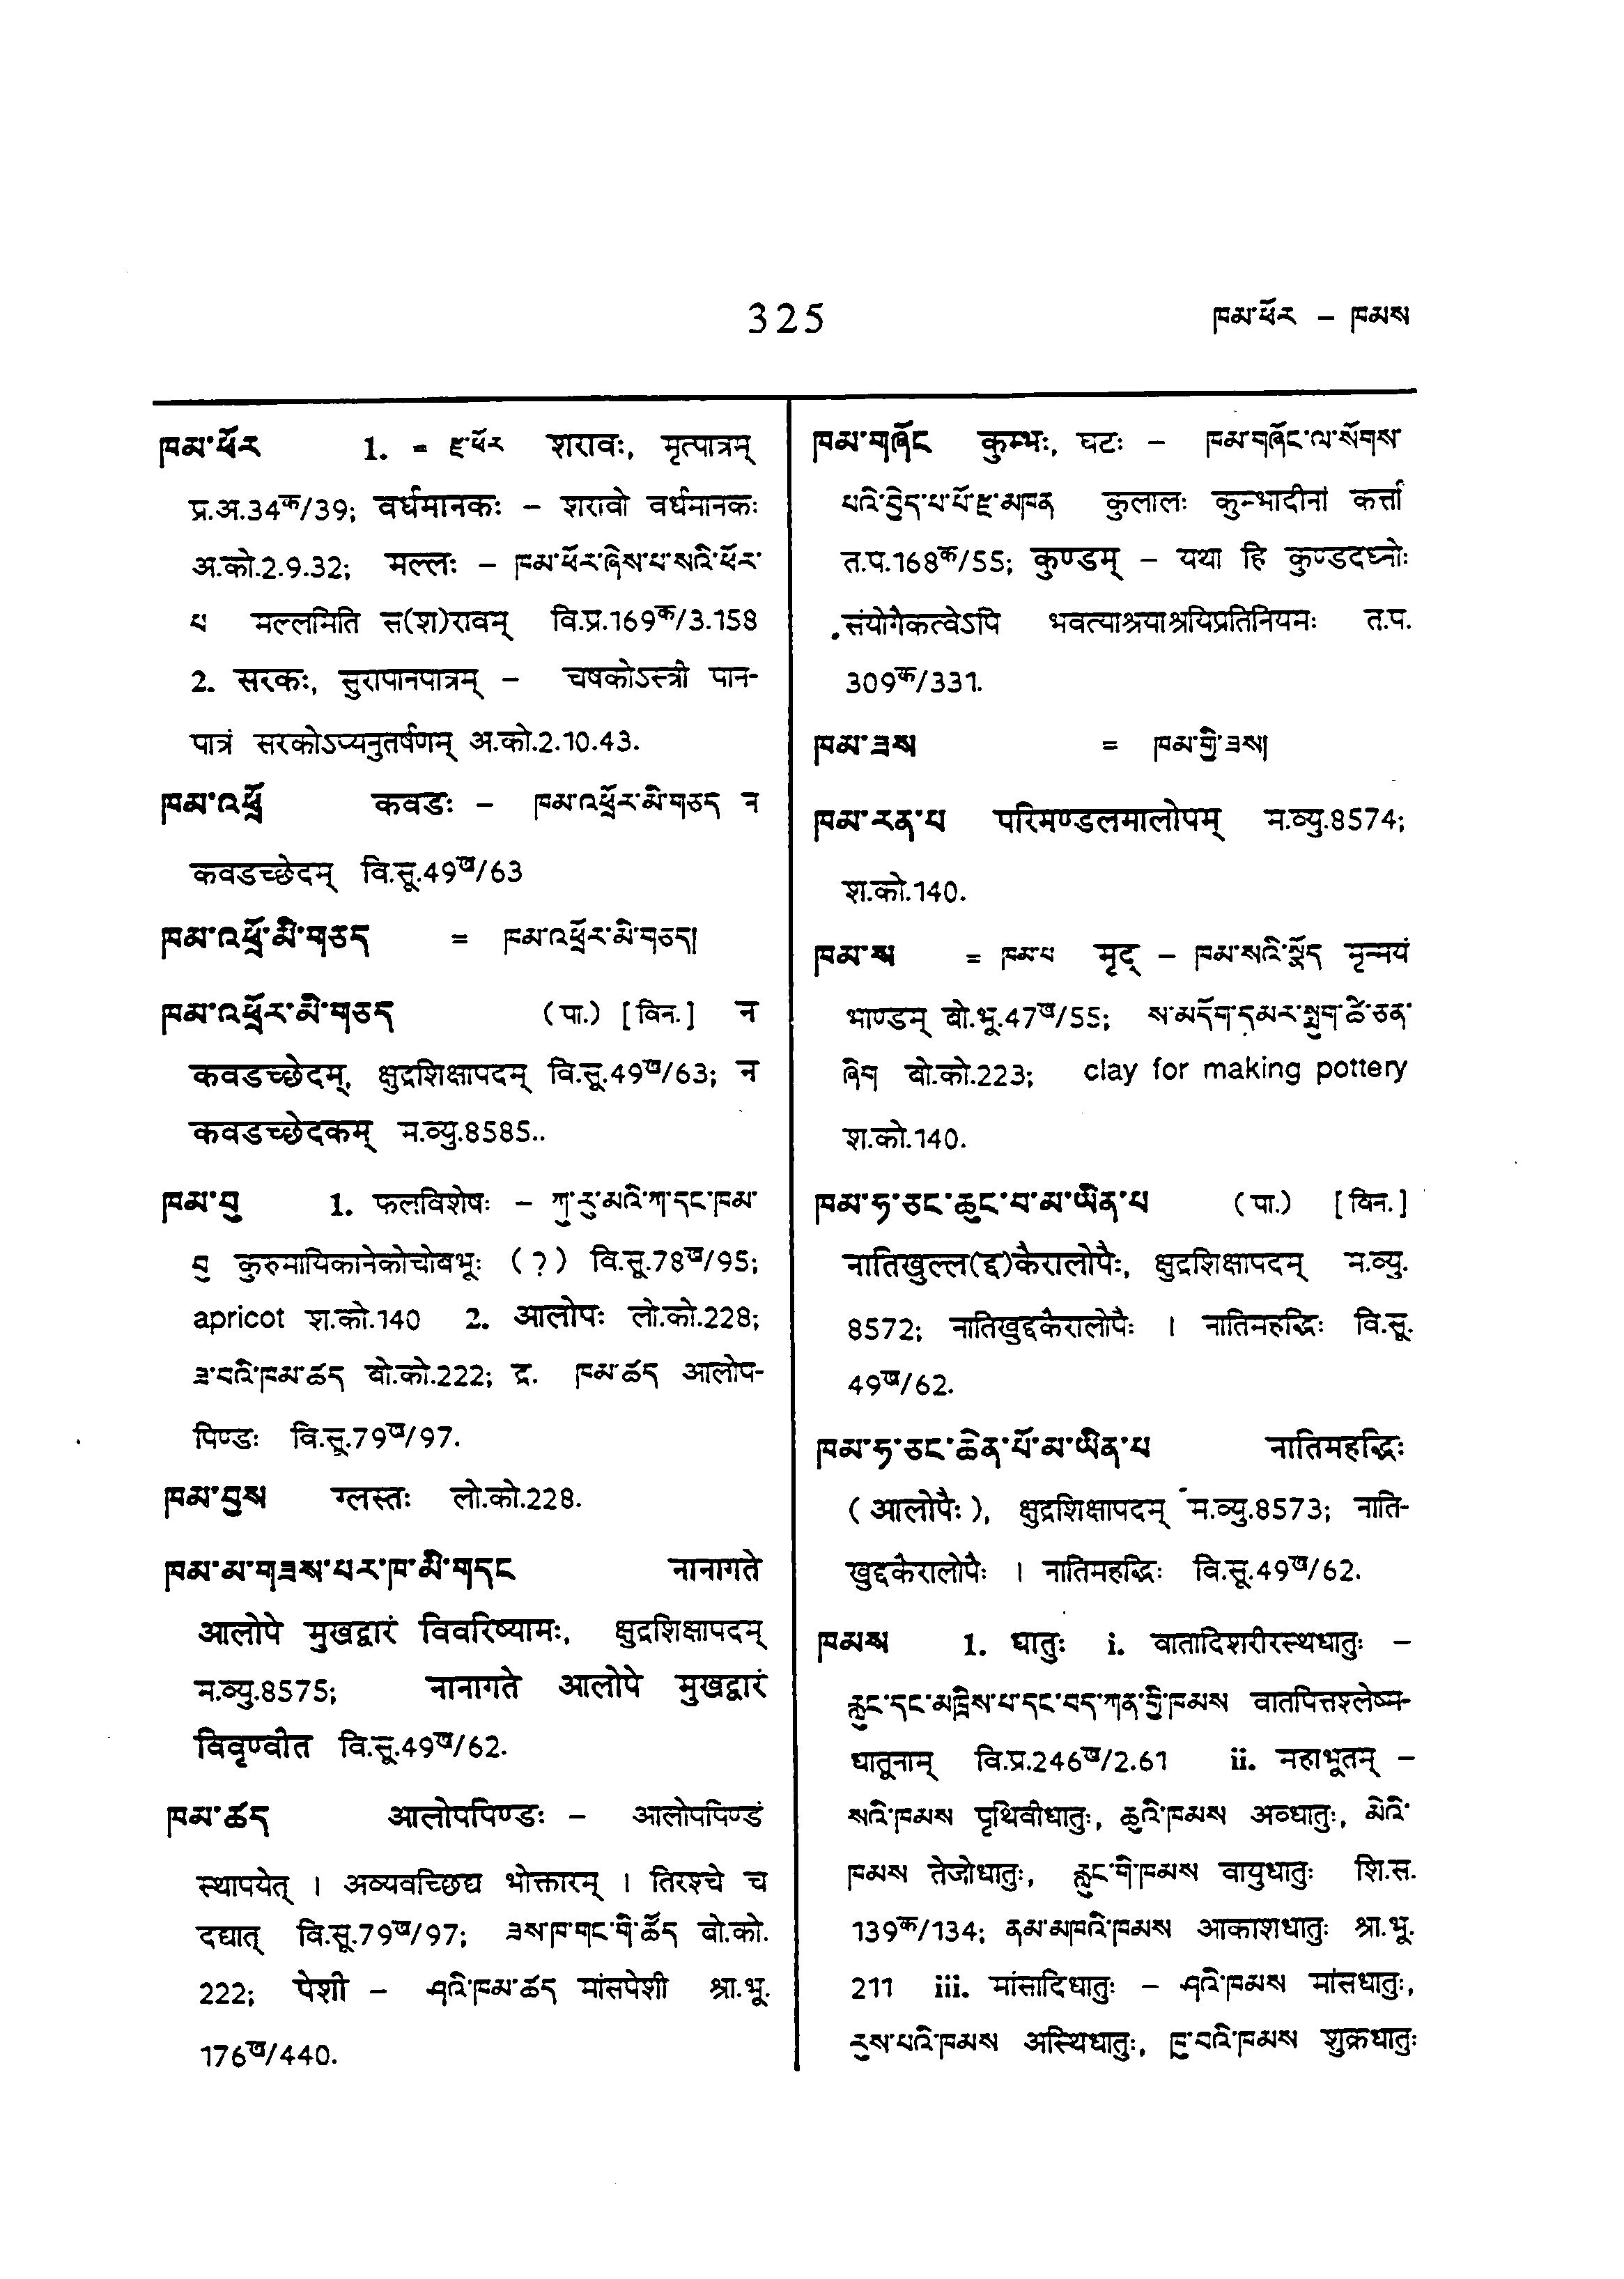 325
ཁམ་ཕོར – ཁམས
ཁམ་ཕོར 1. = རྫ་ཕོར शरावः, मृत्पात्रम्
प्र.अ.34क/39; वर्धमानकः – शरावो वर्धमानकः
अ.को.2.9.32; मल्लः – ཁམ་ཕོར་ཞེས་པ་སའི་ཕོར་
པ मल्लमिति स(श)रावम् वि.प्र.169क/3.158
2. सरकः, सुरापानपात्रम् – चषकोऽस्त्री पान-
पात्रं सरकोऽप्यनुतर्षणम् अ.को.2.10.43.
ཁམ་འཕྲོ कवडः – ཁམ་འཕྲོར་མི་གཅད न
कवडच्छेदम् वि.सू.49ख/63
ཁམ་འཕྲོ་མི་གཅད = ཁམ་འཕྲོར་མི་གཅད།
ཁམ་འཕྲོར་མི་གཅད (पा.) [विन.] न
कवडच्छेदम्, क्षुद्रशिक्षापदम् वि.सू.49ख/63; न
कवडच्छेदकम् म.व्यु.8585..
ཁམ་བུ 1. फलविशेषः – ཀུ་རུ་མའི་ཀ་དང་ཁམ་
བུ कुरुमायिकानेकोचोबभूः (?) वि.सू.78ख/95;
apricot श.को.140 2. आलोपः लो.को.228;
ཟ་བའི་ཁམ་ཚད बो.को.222; द्र. ཁམ་ཚད आलोप-
पिण्डः वि.सू.79ख/97.
ཁམ་བུས ग्लस्तः लो.को.228.
ཁམ་མ་གཟས་པར་ཁ་མི་གདང नानागते
आलोपे मुखद्वारं विवरिष्यामः, क्षुद्रशिक्षापदम्
म.व्यु.8575; नानागते आलोपे मुखद्वारं
विवृण्वीत वि.सू.49ख/62.
ཁམ་ཚད आलोपपिण्डः – आलोपपिण्डं
स्थापयेत् । अव्यवच्छिद्य भोक्तारम् । तिरश्चे च
दद्यात् वि.सू.79ख/97; ཟས་ཁ་གང་གི་ཚོད बो.को.
222; पेशी – ཤའི་ཁམ་ཚད मांसपेशी श्रा.भू.
176ख/440.
ཁམ་གཞོང कुम्भः, घटः – ཁམ་གཞོང་ལ་སོགས་
པའི་བྱེད་པ་པོ་རྫ་མཁན कुलालः कुम्भादीनां कर्त्ता
त.प.168क/55; कुण्डम् – यथा हि कुण्डदध्नोः
संयोगैकत्वेऽपि भवत्याश्रयाश्रयिप्रतिनियमः त.प.
309क/331.
ཁམ་ཟས = ཁམ་གྱི་ཟས།
ཁམ་རན་པ परिमण्डलमालोपम् म.व्यु.8574;
श.को.140.
ཁམ་ས = ཁམ་པ मृद् – ཁམ་སའི་སྣོད मृन्मयं
भाण्डम् बो.भू.47ख/55; ས་མདོག་དམར་སྨུག་ཚི་ཅན་
ཞིག बो.को.223; clay for making pottery
श.को.140.
ཁམ་ཧ་ཅང་ཆུང་བ་མ་ཡིན་པ (पा.) [विन.]
नातिखुल्ल(द्द)कैरालोपैः, क्षुद्रशिक्षापदम् म.व्यु.
8572; नातिखुद्दकैरालोपैः । नातिमहद्भिः वि.सू.
49ख/62.
ཁམ་ཧ་ཅང་ཆེན་པོ་མ་ཡིན་པ नातिमहद्भिः
(आलोपैः), क्षुद्रशिक्षापदम् म.व्यु.8573; नाति-
खुद्दकैरालोपैः । नातिमहद्भिः वि.सू.49ख/62.
ཁམས 1. धातुः i. वातादिशरीरस्थधातुः –
རླུང་དང་མཁྲིས་པ་དང་བད་ཀན་གྱི་ཁམས वातपित्तश्लेष्म-
धातूनाम् वि.प्र.246ख/2.61 ii. महाभूतम् –
སའི་ཁམས पृथिवीधातुः, ཆུའི་ཁམས अब्धातुः, མེའི་
ཁམས तेजोधातुः, རླུང་གི་ཁམས वायुधातुः शि.स.
139क/134; ནམ་མཁའི་ཁམས आकाशधातुः श्रा.भू.
211 iii. मांसादिधातुः – ཤའི་ཁམས मांसधातुः,
རུས་པའི་ཁམས अस्थिधातुः, ཁུ་བའི་ཁམས शुक्रधातुः